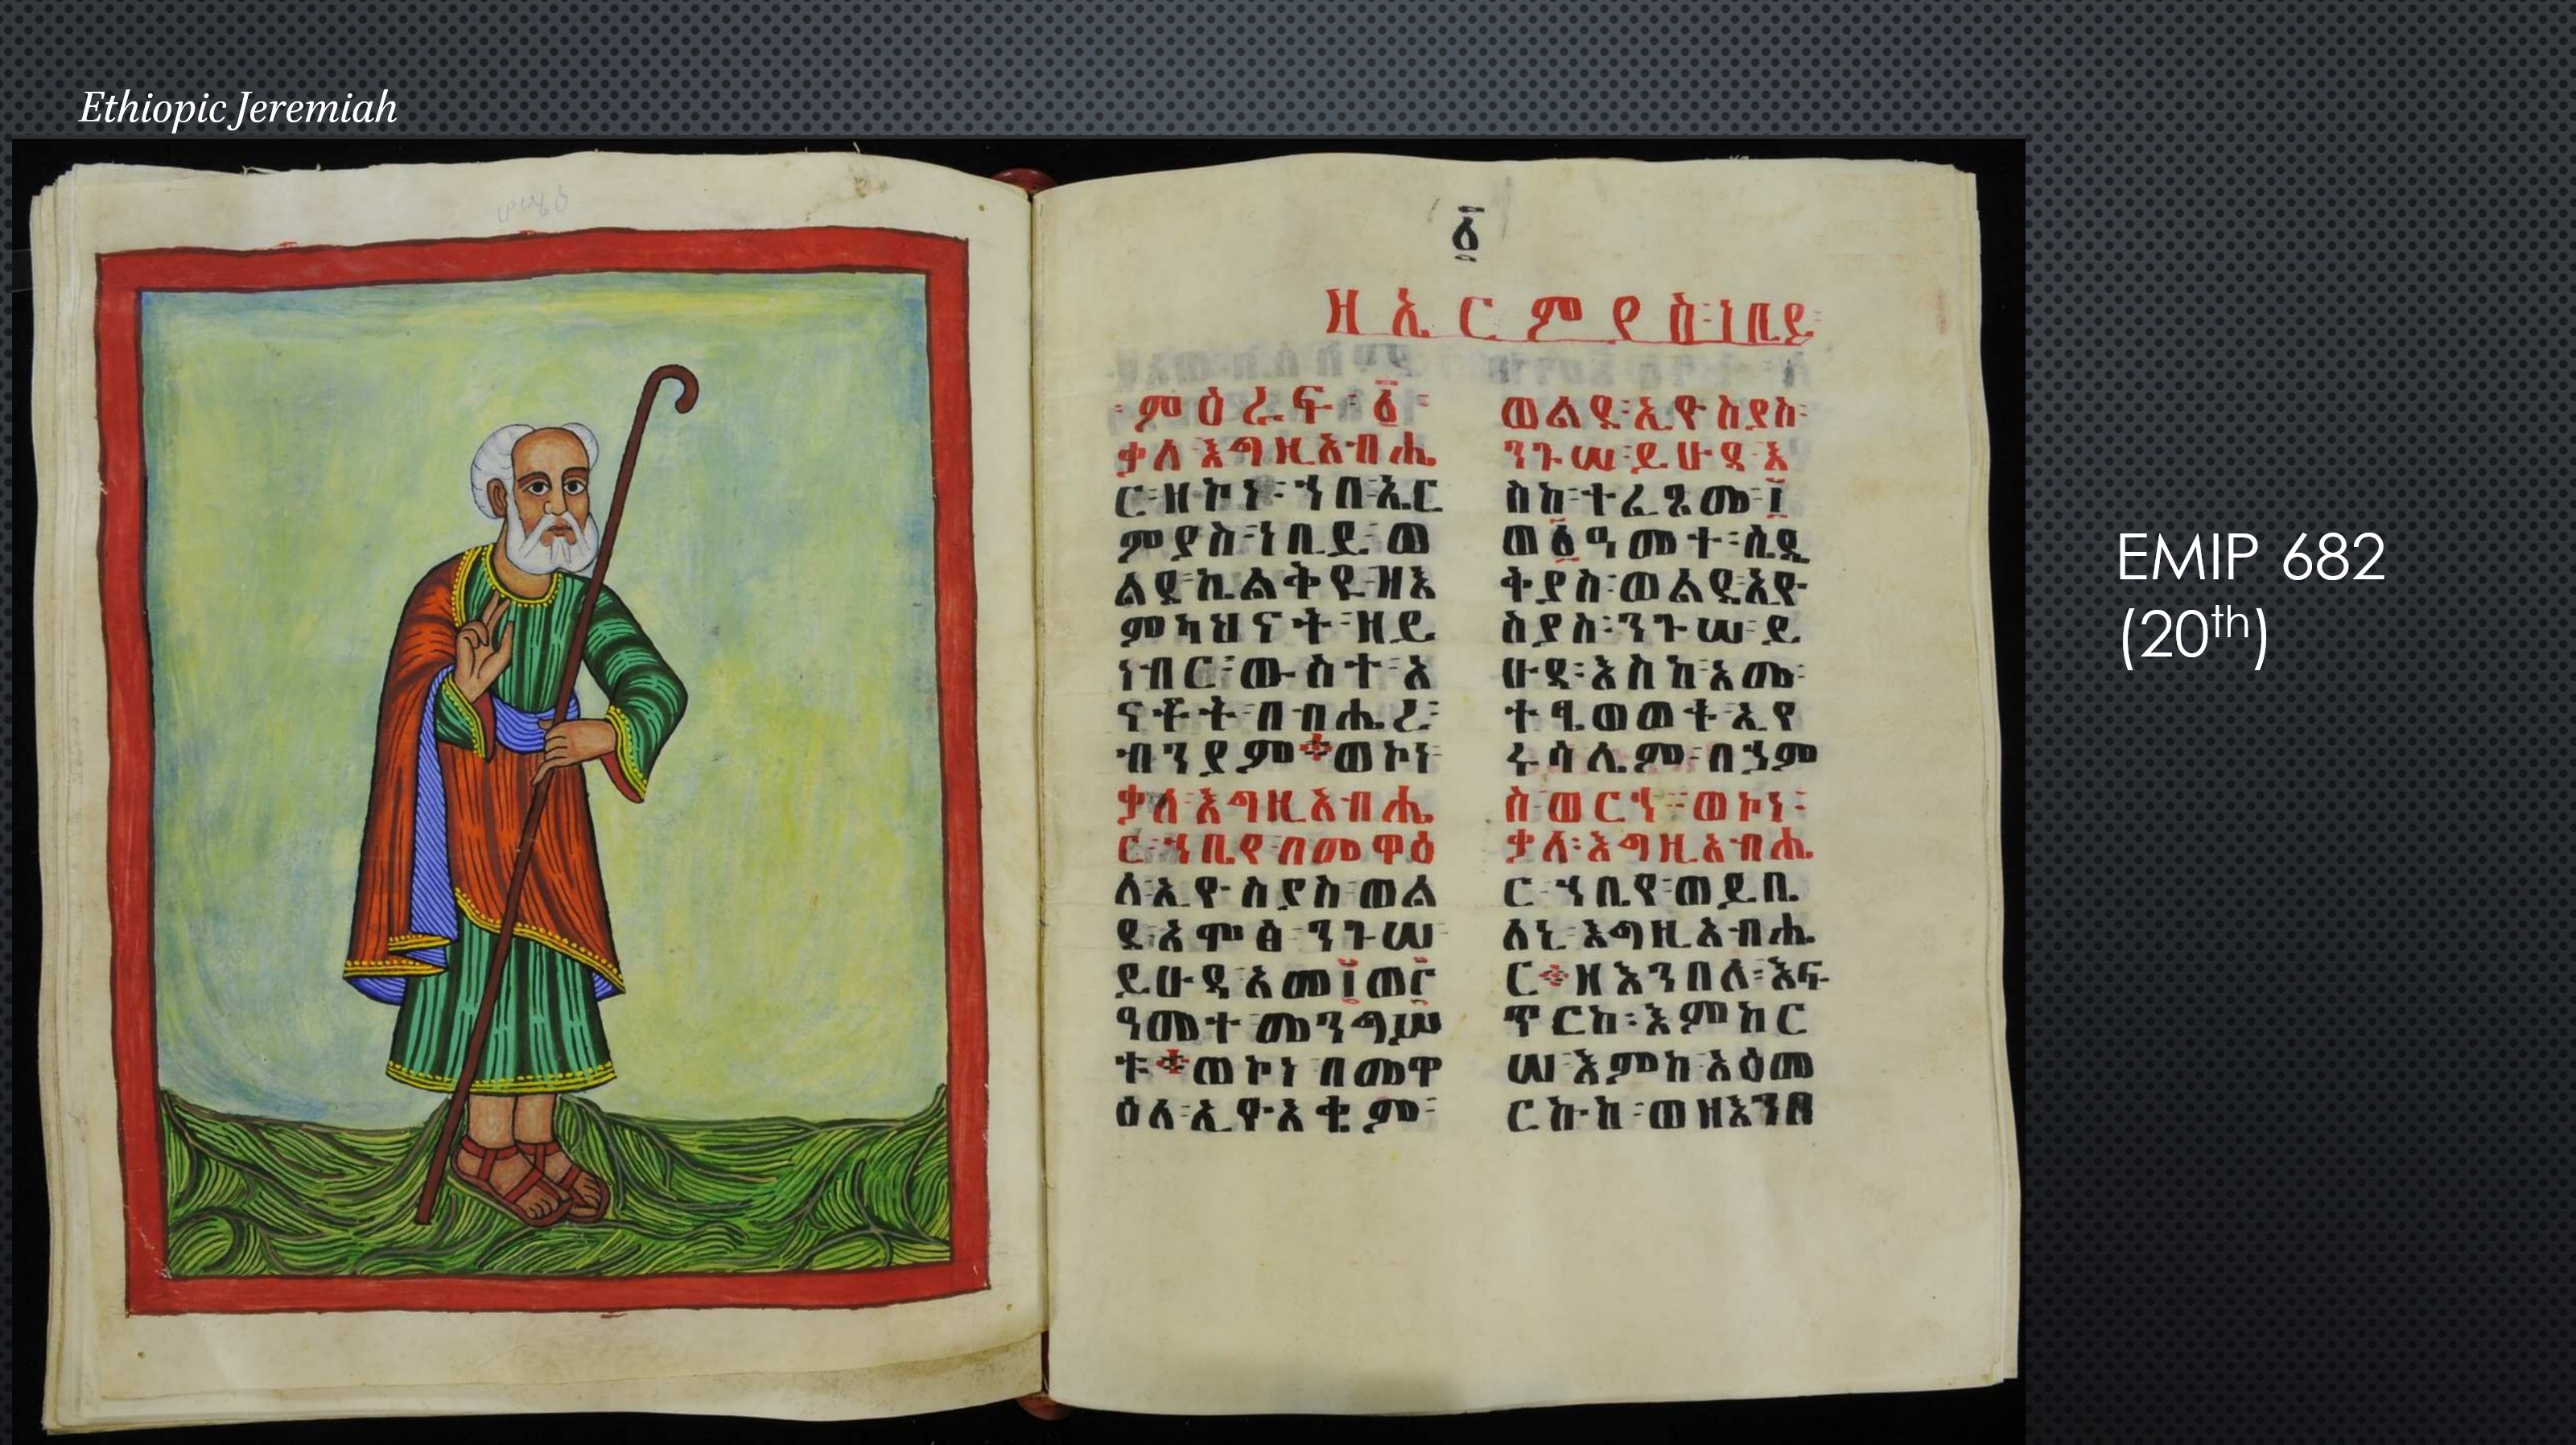 Ethiopic Jeremiah
፩
ዘኤርምያስ፡ነቢይ፡
ምዕራፍ፡፩፡
ቃለ፡እግዚአብሔ
ር፡ዘኮነ፡ኀበ፡ኤር
ምያስ፡ነቢይ፡ወ
ልደ፡ኬልቅዩ፡ዝእ
ምካህናት፡ዘይ
ነብር፡ውስተ፡አ
ናቶት፡በብሔረ፡
ብንያም፨ወኮነ፡
ቃለ፡እግዚአብሔ
ር፡ኀቤየ፡በመዋዕ
ለ፡ኢዮስያስ፡ወል
ደ፡አሞፅ፡ንጉሠ፡
ይሁዳ፡አመ፲ወ፫
ዓመተ፡መንግሥ
ቱ፨ወኮነ፡በመዋ
ዕለ፡ኢዮአቄም፡
ወልደ፡ኢዮስያስ፡
ንጉሠ፡ይሁዳ፡እ
ስከ፡ተፈጸመ፡፲
ወ፩ዓመተ፡ሴዴ
ቅያስ፡ወልደ፡ኢዮ
ስያስ፡ንጉሠ፡ይ
ሁዳ፡እስከ፡አመ፡
ተፄወወት፡ኢየ
ሩሳሌም፡በኃም
ስ፡ወርኅ፡ወኮነ፡
ቃለ፡እግዚአብሔ
ር፡ኀቤየ፡ወይቤ
ለኒ፡እግዚአብሔ
ር፨ዘእንበለ፡እፍ
ጥርከ፡እምከር
ሠ፡እምከ፡አዕመ
ርኩከ፡ወዘእንበ
EMIP 682
(20th)